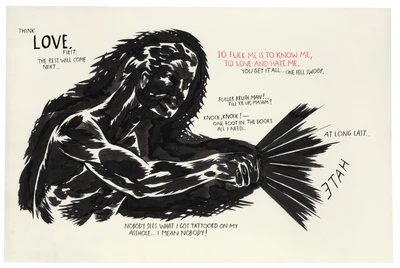 THINK
LOVE,
FIRST.
THE REST WILL COME
NEXT...
TO FUCK ME IS TO KNOW ME,
TO LOVE AND HATE ME.
YOU GET IT ALL... ONE FELL SWOOP.
FULLER BRUSH MAN!...
FILL 'ER UP, MA'AM!
KNOCK, KNOCK! —
ONE FOOT IN THE DOOR'S
ALL I NEED...
AT LONG LAST...
HATE
NOBODY SEES WHAT I GOT TATTOOED ON MY
ASSHOLE... I MEAN NOBODY!